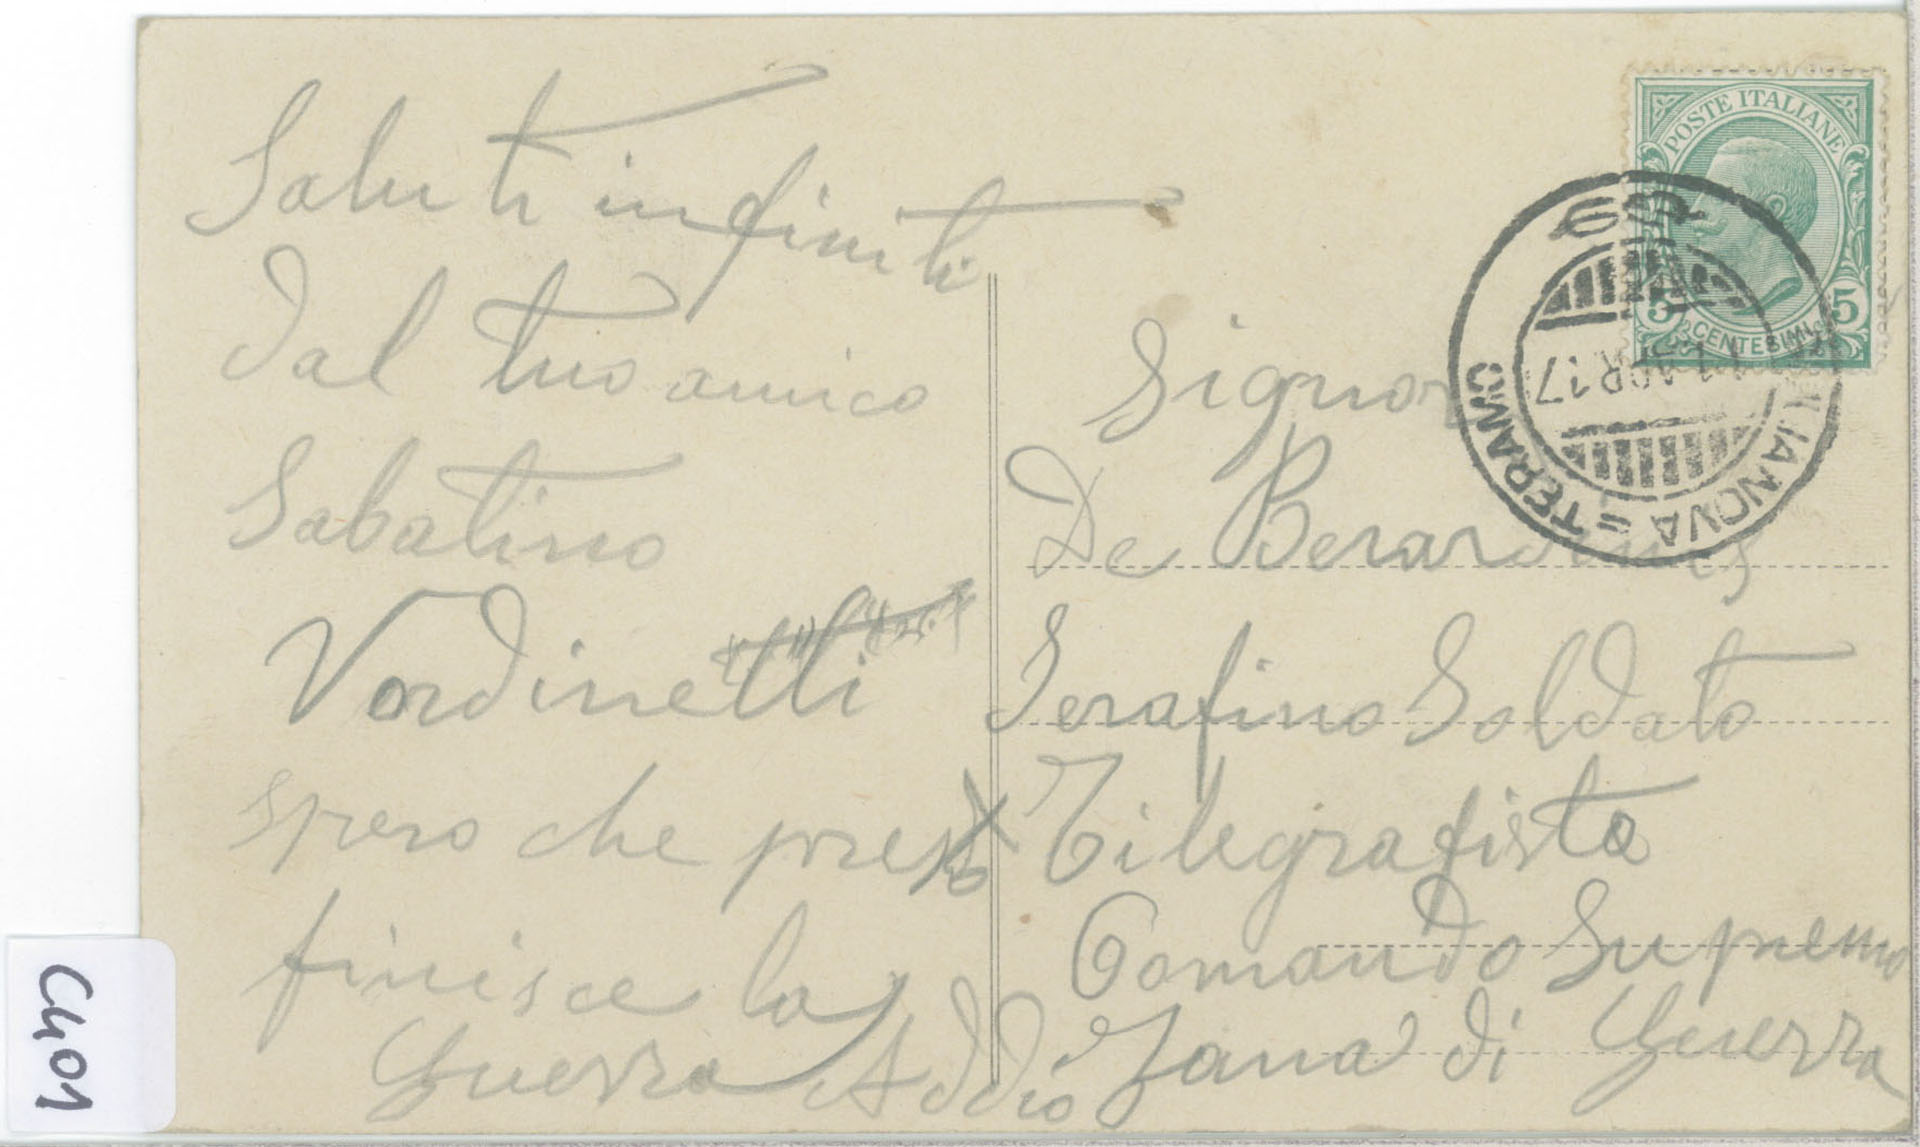 Saluti infiniti
dal tuo amico
Sabatino
Vardinelli
spero che presto
finisce la
Guerra Addio
POSTE ITALIANE
5 CENTESIMI 5
APR 17
TERAMO
Signor
De Berardinis
Serafino Soldato
Tilegrafista
Comando Supremo
Zana di Guerra
C401